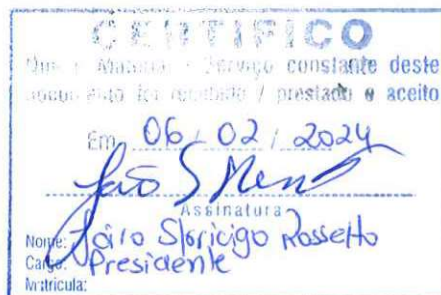 CERTIFICO
Que o Material / Serviço constante deste
documento foi recebido / prestado e aceito
Em 06 / 02 / 2024
Assinatura
Nome: Jairo Rossetto
Cargo: Presidente
Matricula: